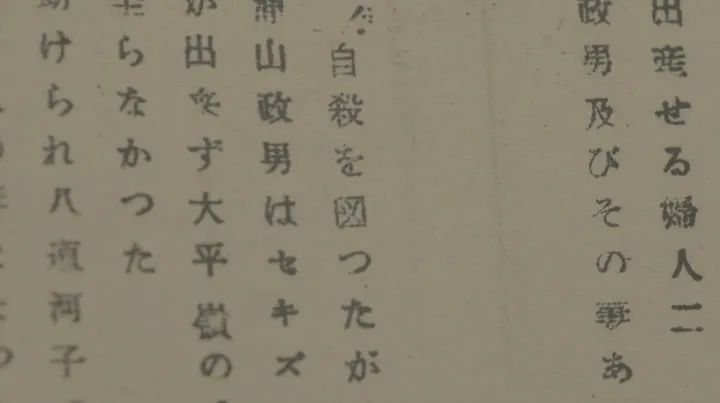 出産せる婦人二
政男及びその事あ
自殺を図つたが
山政男はセキズ
が出来ず大平の
らなかつた
けられ八道河子